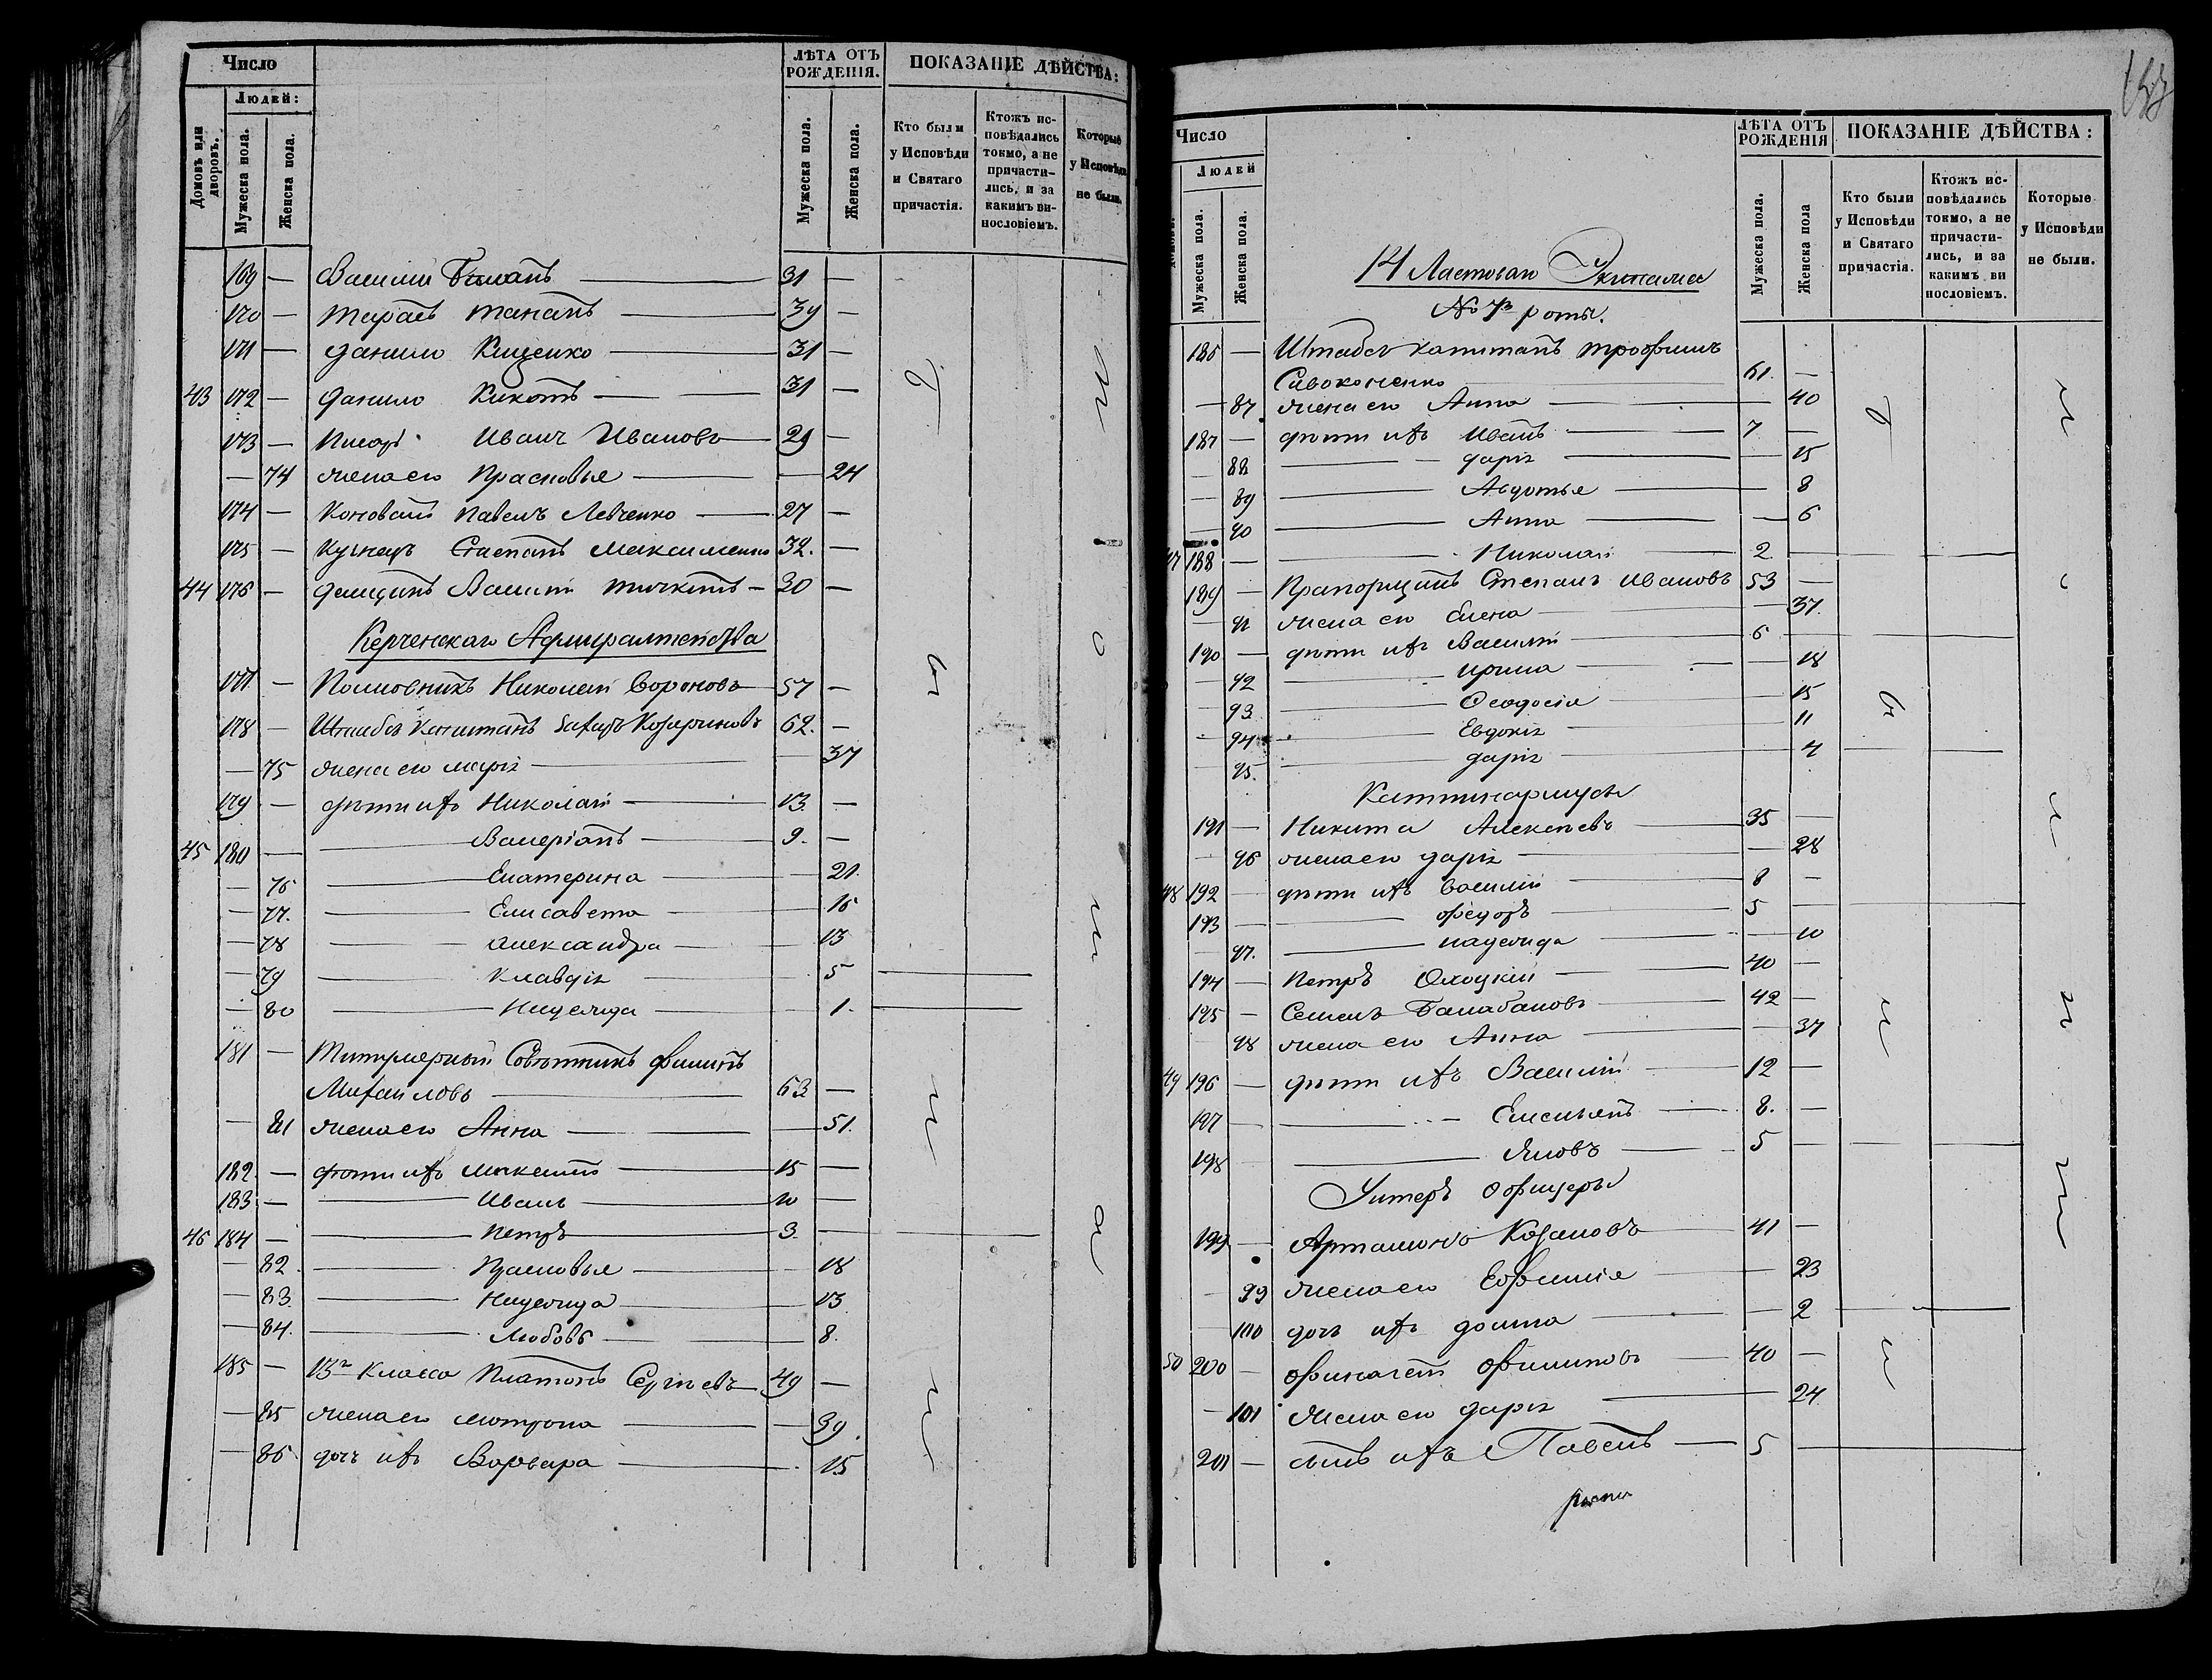 Число
ЛѢТА ОТЪ РОЖДЕНІЯ.
ПОКАЗАНІЕ ДѢЙСТВА:
Домовъ или дворовъ.
Людей:
Мужеска пола.
Женска пола.
Мужеска пола.
Женска пола.
Кто были у Исповѣди и Святаго причастія.
Ктожъ исповѣдались токмо, а не причастились, и за какимъ винословіемъ.
Которые у Исповѣди не были.
169 — Василій 31 —
170 — Тарасъ 39 —
171 — Данило Кищенко 31 —
43 172 — Данило Кикоть 31 —
173 — Писарь Иванъ Ивановъ 29 —
— 74 жена его Прасковья — 24
174 — Коновалъ Павелъ Левченко 27 —
175 — Кузнецъ Степанъ Максименко 32. —
44 176 — Денщикъ Василій 30 —
Керченскаго Адмиралтейства
177 — Полковникъ Николай Вороновъ 57 —
178 — Штабсъ Капитанъ Захаръ Козариновъ 62. —
— 75 жена его Марія — 37
179 — дѣти ихъ Николай 13 —
45 180 — Валеріанъ 9. —
— 76 Екатерина — 21.
— 77. Елисавета — 16
— 78 Александра — 13
— 79 Клавдія — 5
— 80 Надежда — 1.
181 — Титулярный Совѣтникъ Филипъ
Михайловъ 63 —
— 81 жена его Анна — 51.
182. — дѣти ихъ 15 —
183 — Иванъ 10 —
46 184 — Петръ 3. —
— 82 Прасковья — 18
— 83. Надежда — 13
— 84. Любовь — 8.
185 — 13го класса Платонъ Сергѣевъ 49 —
— 85 жена его Мотрона — 39.
— 86 дочь ихъ Варвара — 15
Число
ЛѢТА ОТЪ РОЖДЕНІЯ
ПОКАЗАНІЕ ДѢЙСТВА:
Людей
Мужеска пола.
Женска пола.
Мужеска пола.
Женска пола
Кто были у Исповѣди и Святаго причастія.
Ктожъ исповѣдались токмо, а не причастились, и за какимъ винословіемъ.
Которые у Исповѣди не были.
14 Ластоваго Экипажа
роты.
186 — Штабсъ капитанъ Трофимъ
Сивоконенко 61. —
— 87 жена его Анна — 40
187 — дѣти ихъ Иванъ 7 —
— 88 Дарія — 15
— 89 Авдотья — 8
— 90 Анна — 6
47 188 — Николай 2 —
189 — Прапорщикъ Степанъ Ивановъ 53 —
— 91 жена его Елена — 37.
190 — дѣти ихъ Василій 6 —
— 92 Ирина — 18
— 93 Феодосія — 15
— 94 Евдокія — 11
— 95. Дарія — 4
Каптинармусы
191 — Никита Алексѣевъ 35 —
— 96 жена его Дарія — 28
48 192 — дѣти ихъ Василій 8 —
193 — Федоръ 5 —
— 97. Надежда — 10
194 — Петръ 40 —
195 — Семенъ Балабановъ 42 —
— 98 жена его Анна — 37
49 196 — дѣти ихъ Василій 12 —
197 — 8. —
198 — Яковъ 5 —
Унтеръ офицеры
199 — Артамонъ Козаковъ 41 —
— 99 жена его Ефимія — 23
— 100 дочь ихъ Домна — 2
50 200 — Филиповъ 40 —
— 101 жена его Дарія — 24
201 — сынъ ихъ Павелъ 5 —